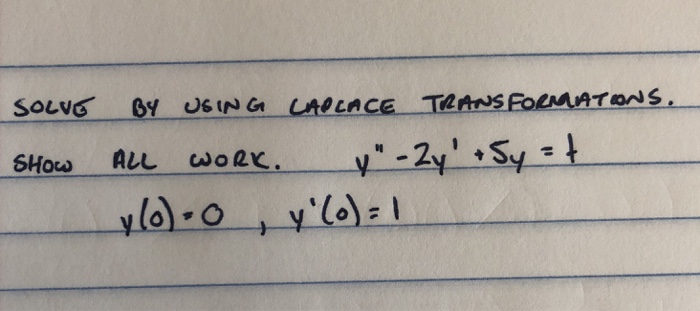 SOLVE BY USING LAPLACE TRANSFORMATIONS.
SHOW ALL WORK. y'' - 2y' + 5y = t
y(0) = 0 , y'(0) = 1